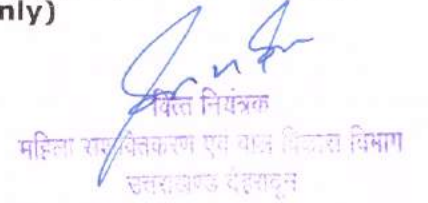 nly)
वित्त नियंत्रक
महिला सशक्तिकरण एवं बाल विकास विभाग
उत्तराखण्ड देहरादून